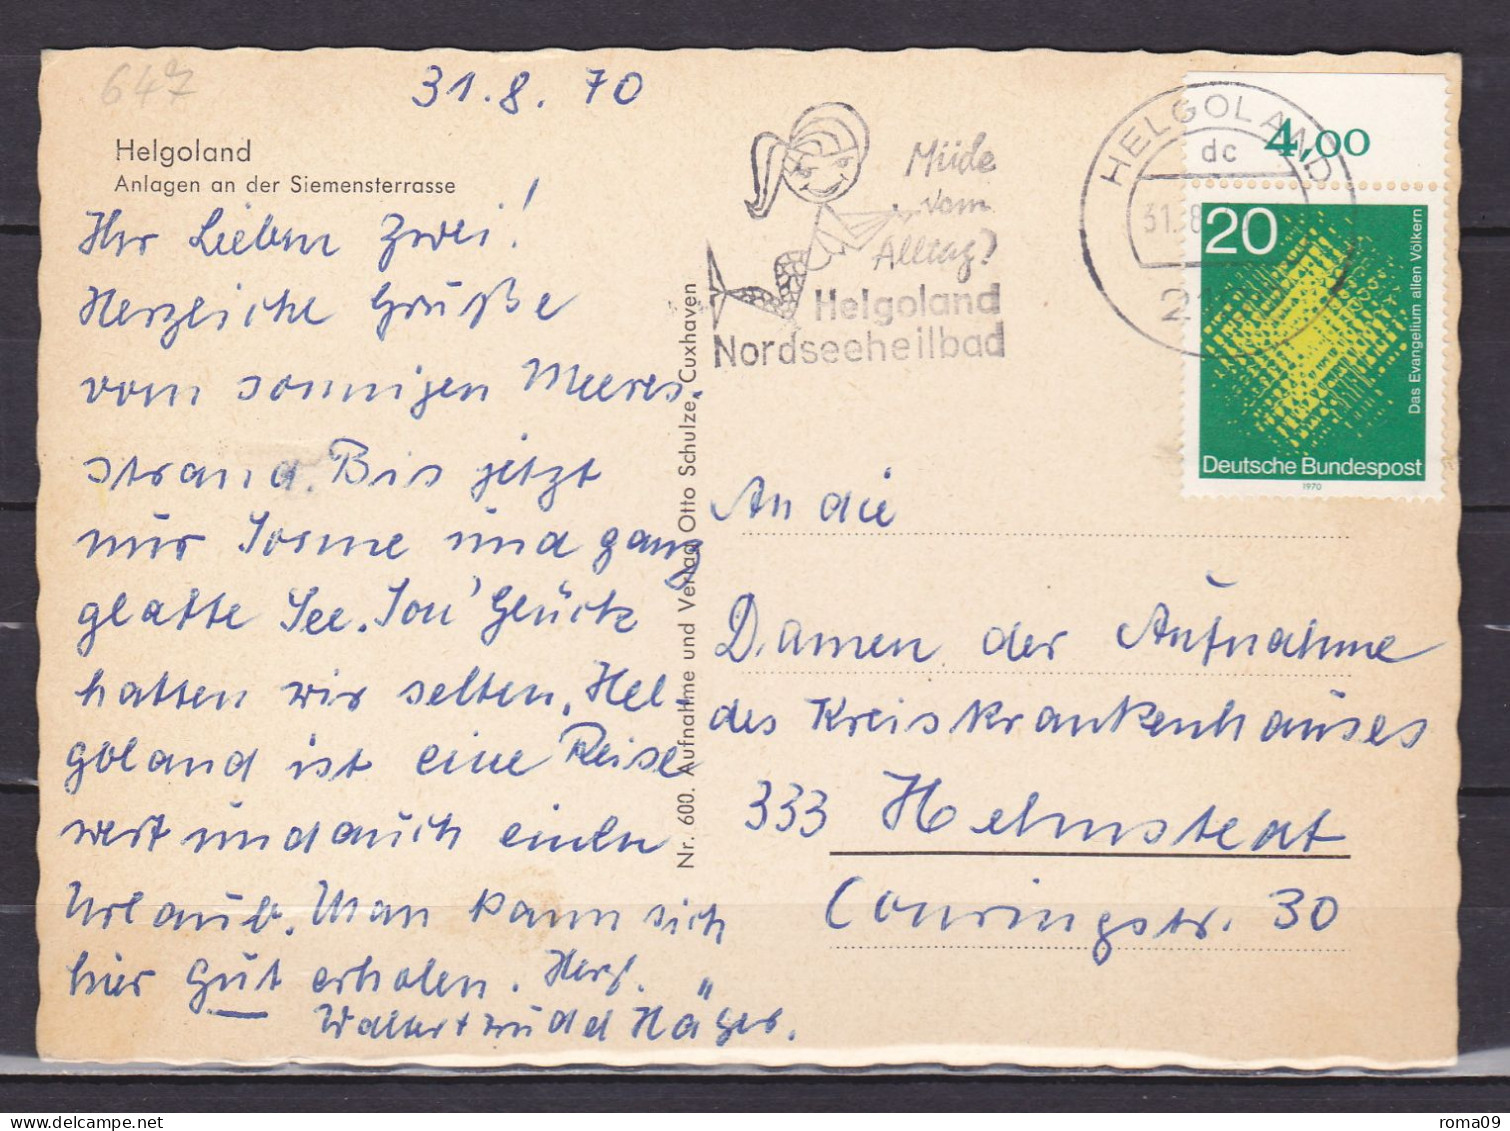 647
31.8.70
Helgoland
Anlagen an der Siemensterrasse
Ihr Lieben Zwei!
Herzliche Grüße
vom sonnigen Meeres-
strand. Bis jetzt
nur Sonne und ganz
glatte See. So'n Glück
hatten wir selten. Hel-
goland ist eine Reise
wert und auch einen
Urlaub. Man kann sich
hier gut erholen. Herzl.
Nr. 600. Aufnahme und Verlag Otto Schulze, Cuxhaven
Müde
vom
Alltag?
Helgoland
Nordseeheilbad
HELGOLAND
dc
31.8
4,00
20
Das Evangelium allen Völkern
Deutsche Bundespost
1970
An die
Damen der Aufnahme
des Kreiskrankenhauses
333 Helmstedt
Conringstr. 30
roma09